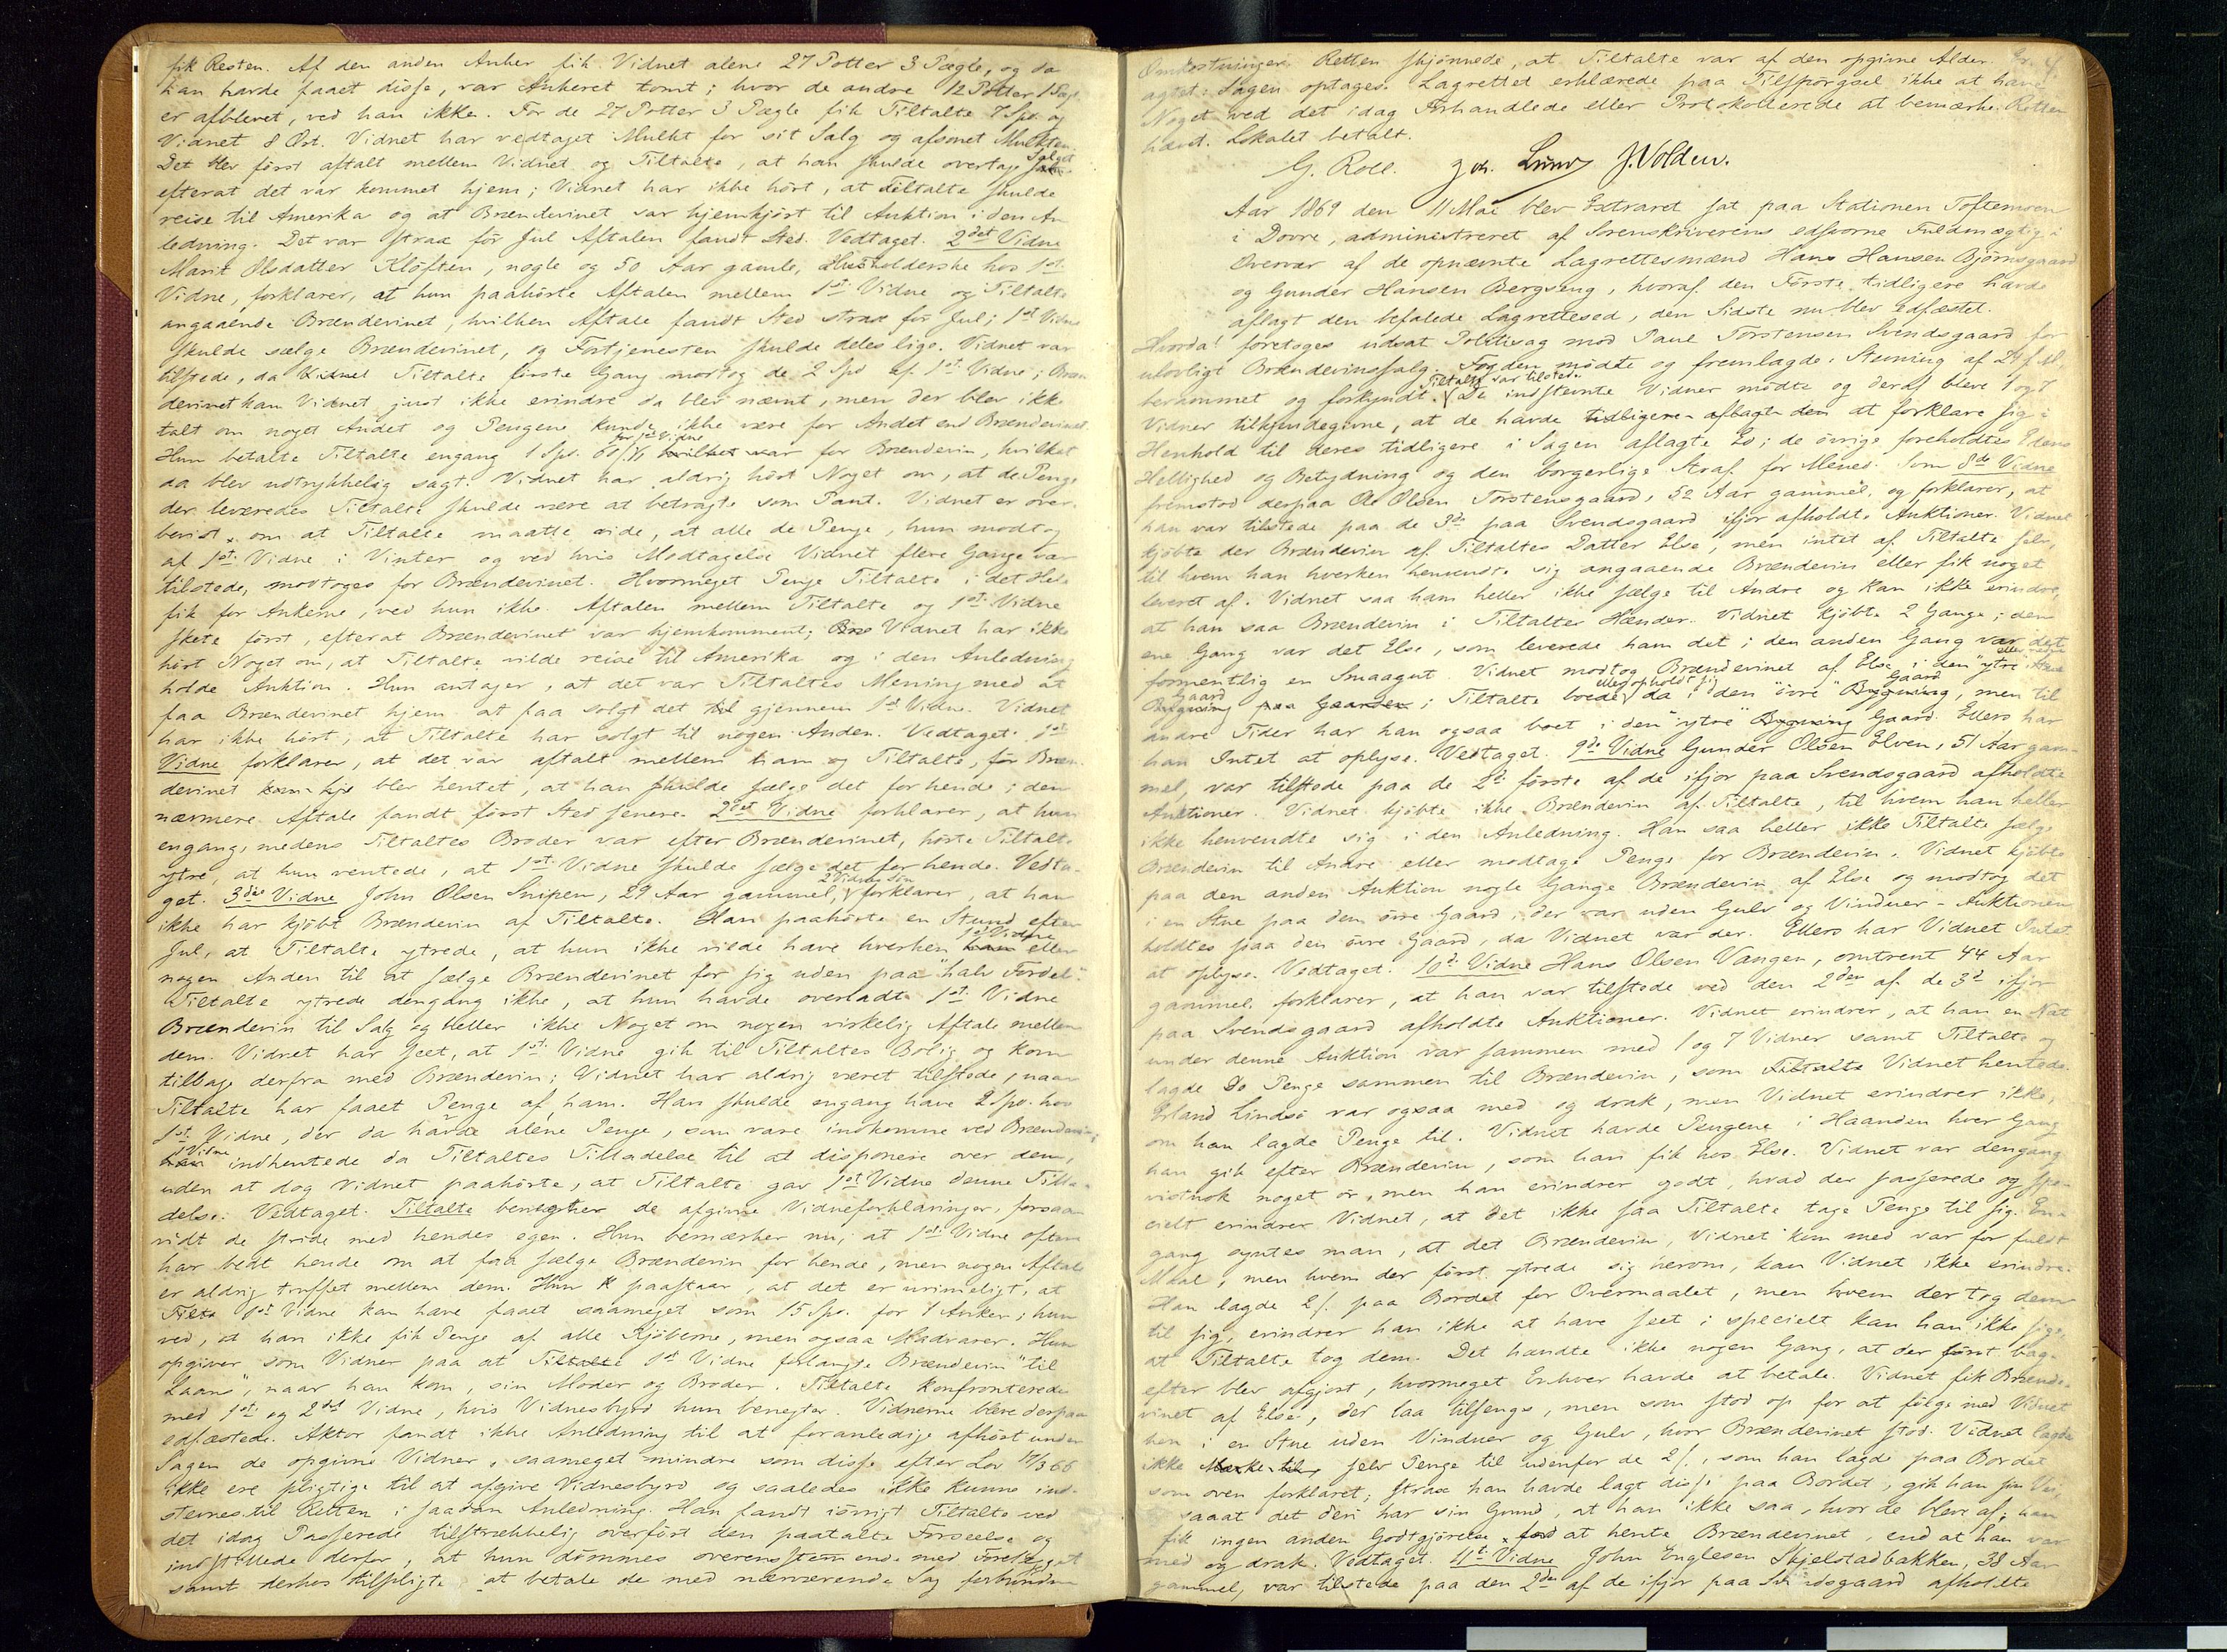 fik Resten. Af den anden Anker fik Vidnet alene 27 Potter 3 Pægle, og da
han havde faaet disse, var Ankeret tomt; hvor de andre 12 Potter 1 Pægl
er afblevet, ved han ikke. For de 27 Potter 3 Pægle fik Tiltalte 7 Spd. og
Vidnet 8 Ort. Vidnet har vedtaget Mulkt for sit Salg og afsonet Mulkten.
Det blev först aftalt mellem Vidnet og Tiltalte, at han skulde overtage Salget
efterat det var kommet hjem; Vidnet har ikke hört, at Tiltalte skulde
reise til Amerika og at Brændevinet var hjemkjört til Auktion i den An
ledning. Det var strax för Jul Aftalen fandt Sted. Vedtaget. 2det Vidne
Marit Olsdatter Klöften, nogle og 50 Aar gamle, Husholderske hos 1st
Vidne, forklarer, at hun paahörte Aftalen mellem 1st Vidne og Tiltalte
angaaende Brændevinet, hvilken Aftale fandt Sted strax för Jul; 1st Vidne
skulde sælge Brændevinet, og Fortjenesten skulde deles lige. Vidnet var
tilstede, da Vidnet Tiltalte förste Gang modtog de 2 Spd af 1st Vidne; Bræn
devinet kan Vidnet just ikke erindre da blev nævnt, men der blev ikke
talt om noget Andet og Pengene kunde ikke være for Andet end Brændevinet.
Hun betalte Tiltalte engang for 1st Vidne 1 Spd. 60 ß hvilket var for Brændevin, hvilket
da blev udtrykkelig sagt. Vidnet har aldrig hört Noget om, at de Penge
der leveredes Tiltalte skulde være at betragte som Pant. Vidnet er over
bevist om at Tiltalte maatte vide, at alle de Penge, hun modtog
af 1st Vidne i Vinter og ved hvis Modtagelse Vidnet flere Gange var
tilstede, modtoges for Brændevinet. Hvormeget Penge Tiltalte i det Hele
fik for Ankerne, ved hun ikke. Aftalen mellem Tiltalte og 1st Vidne
skete först, efterat Brændevinet var hjemkomment; Vidnet har ikke
hört Noget om, at Tiltalte vilde reise til Amerika og i den Anledning
holde Auktion. Hun antager, at det var Tiltaltes Mening med at
faa Brændevinet hjem at faa solgt det til gjennem 1st Vidne. Vidnet
har ikke hört, at Tiltalte har solgt til nogen Anden. Vedtaget. 1st
Vidne forklarer, at det var aftalt mellem ham og Tiltalte, för Bræn
devinet kom hje blev hentet, at han skulde sælge det for hende; den
nærmere Aftale fandt först Sted senere. 2det Vidne forklarer, at hun
engang, medens Tiltaltes Broder var efter Brændevinet, hörte Tiltalte
ytre, at hun ventede, at 1st Vidne skulde sælge det for hende. Vedta-
get. 3die Vidne John Olsen Snipen, 29 Aar gammel, 2 Vidnes Sön forklarer, at han
ikke har kjöbt Brændevin af Tiltalte. Han paahörte en Stund efter
Jul, at Tiltalte ytrede, at hun ikke vilde have hverken 1st Vidne eller
nogen Anden til at sælge Brændevinet for sig uden paa "halv Fordel".
Tiltalte ytrede dengang ikke, at hun havde overladt 1st Vidne
Brændevin til Salg og heller ikke Noget om nogen virkelig Aftale mellem
dem. Vidnet har seet, at 1st Vidne gik til Tiltaltes Bolig og kom
tilbage derfra med Brændevin; Vidnet har aldrig været tilstede, naar
Tiltalte har faaet Penge af ham. Han skulde engang have 2 Spd. hos
1st Vidne, der da havde alene Penge, som vare indkomne ved Brændevin;
1 Vidne indhentede da Tiltaltes Tilladelse til at disponere over dem,
uden at dog Vidnet paahörte, at Tiltalte gav 1st Vidne denne Tilla-
delse. Vedtaget. Tiltalte benegter de afgivne Vidneforklaringer, forsaa
vidt de stride med hendes egen. Hun bemærker nu, at 1st Vidne oftere
har bedt hende om at faa sælge Brændevin for hende, men nogen Aftale
er aldrig truffet mellem dem. Hun paastaar, at det er urimeligt, at
1st Vidne kan have faaet saameget som 15 Spd. for 1 Anker; hun
ved, at han ikke fik Penge af alle Kjöberne, men ogsaa Madvarer. Hun
opgiver som Vidner paa at Tiltalte 1st Vidne forlangte Brændevin "til
Laans", naar han kom, sin Moder og Broder. Tiltalte konfronteredes
med 1st og 2det Vidne, hvis Vidnesbyrd hun benegter. Vidnerne bleve derpaa
edfæstede. Aktor fandt ikke Anledning til at foranledige afhört under
Sagen de opgivne Vidner, saameget mindre som disse efter Lov 17/3 66
ikke ere pligtige til at afgive Vidnesbyrd og saaledes ikke kunne ind-
stevnes til Retten i saadan Anledning. Han fandt iövrigt Tiltalte ved
det idag Passerede tilstrækkelig overfört den paatalte Forseelse og
indstillede derfor, at hun dömmes overensstemmende med Forelægget
samt derhos tilpligtes at betale de med nærværende Sag forbundne
Omkostninger. Retten skjönnede, at Tiltalte var af den opgivne Alder.
agtet: Sagen optages. Lagrettet erklærede paa Tilspörgsel ikke at have
Noget ved det idag Forhandlede eller Protokollerede at bemærke. Retten
hævet. Lokalet betalt.
G. Roll. Joh. Lund J. Volden.
Aar 1869 den 11 Mai blev Extraret sat paa Stationen Toftemoen
i Dovre, administreret af Sorenskriverens edsvorne Fuldmægtig i
Overvær af de opnævnte Lagrettesmænd Hans Hansen Bjørnsgaard
og Gunder Hansen Bergseng, hvoraf den Förste tidligere havde
aflagt den befalede Lagrettesed, den Sidste nu blev edfæstet.
Hvorda! foretoges udsat Politisag mod Paul Torstensen Svendsgaard for
ulovligt Brændevinssalg. Fogden mödte og fremlagde: Stevning af
berammet og forkyndt. Tiltalte var tilstede. De indstevnte Vidner mödte og deraf bleve 1 og 7
Vidner tilkjendegivne, at de havde tidligere aflagt den at forklare sig i
Henhold til deres tidligere i Sagen aflagte Ed; de övrige foreholdtes Edens
Hellighed og Betydning og den borgerlige Straf for Mened. Som 8de Vidne
fremstod derpaa Ole Olsen Torstensgaard, 52 Aar gammel, og forklarer, at
han var tilstede paa de 3de paa Svendsgaard ifjor afholdte Auktioner. Vidnet
kjöbte der Brændevin af Tiltaltes Datter Else, men intet af Tiltalte selv,
til hvem han hverken henvendte sig angaaende Brændevin eller fik noget
leveret af. Vidnet saa ham heller ikke sælge til Andre og kan ikke erindre,
at han saa Brændevin i Tiltaltes Hænder. Vidnet kjöbte 2 Gange; den
ene Gang var det Else, som leverede ham det; den anden Gang var det
formentlig en Smaagut. Vidnet modtog Brændevinet af Else i den "ytre"
Gaard; Tiltalte boede eller opholdt sig da i den "övre" Gaard, men til
andre Tider har han ogsaa boet i den "ytre" Bygning Gaard. Ellers har
han Intet at oplyse. Vedtaget. 9de Vidne Gunder Olsen Elven, 51 Aar gam-
mel, var tilstede paa de 2de förste af de ifjor paa Svendsgaard afholdte
Auktioner. Vidnet kjöbte ikke Brændevin af Tiltalte, til hvem han heller
ikke henvendte sig i den Anledning. Han saa heller ikke Tiltalte sælge
Brændevin til Andre eller modtage Penge for Brændevin. Vidnet kjöbte
paa den anden Auktion nogle Gange Brændevin af Else og modtog det
i en Stue paa den övre Gaard, der var uden Gulv og Vinduer - Auktionen
holdtes paa den övre Gaard, da Vidnet var der. Ellers har Vidnet Intet
at oplyse. Vedtaget. 10de Vidne Hans Olsen Vangen, omtrent 44 Aar
gammel, forklarer, at han var tilstede ved den 2den af de 3de ifjor
paa Svendsgaard afholdte Auktioner. Vidnet erindrer, at han en Nat
under denne Auktion var sammen med 1 og 7 Vidner samt Tiltalte og
lagde de Penge sammen til Brændevin, som Tiltalte Vidnet hentede.
Erland Lindsö var ogsaa med og drak, men Vidnet erindrer ikke,
om han lagde Penge til. Vidnet havde Pengene i Haanden hver Gang
han gik efter Brændevin, som han fik hos Else. Vidnet var dengang
vistnok noget ör, men han erindrer godt, hvad der passerede og spe-
cielt erindrer Vidnet, at det ikke saa Tiltalte tage Penge til sig. En-
gang syntes man, at det Brændevin, Vidnet kom med var for fuldt
Maal, men hvem der först ytrede sig herom, kan Vidnet ikke erindre.
Han lagde 2 ß. paa Bordet for Overmaalet, men hvem der tog dem
til sig, erindrer han ikke at have seet i specielt kan han ikke sige,
at Tiltalte tog dem. Det hændte ikke nogen Gang, at der först bag-
efter blev afgjort, hvormeget Enhver havde at betale. Vidnet fik Brænde-
vinet af Else, der laa tilsengs, men som stod op for at fölge med Vidnet
hen i en Stue uden Vinduer og Gulv, hvor Brændevinet stod. Vidnet lagde
ikke selv Penge til udenfor de 2 ß., som han lagde paa Bordet
som oven forklaret; strax han havde lagt disse paa Bordet, gik han sin Vei,
saaat det deri har sin Grund, at han ikke saa, hvor de blev af; han
fik ingen anden Godtgjörelse for at hente Brændevinet, end at han var
med og drak. Vedtaget. 11te Vidne John Englesen Skjelstadbakken, 38 Aar
gammel, var tilstede paa den 2den af de ifjor paa Svendsgaard afholdte